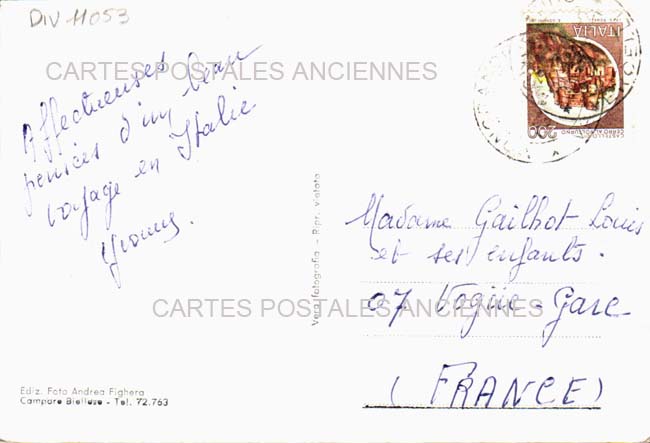 DIV 11053
CARTES POSTALES ANCIENNES
Affectueuses
pensées d'un beau
voyage en Italie
ITALIA
200
CASTELLO DI
CERRO AL VOLTURNO
Vera fotografia - Ripr. vietata
Madame Gailhot Louis
et ses enfants.
07 Vogüe-Gare
CARTES POSTALES ANCIENNES
(FRANCE)
Ediz. Foto Andrea Fighera
Campore Biellese - Tel. 72.763